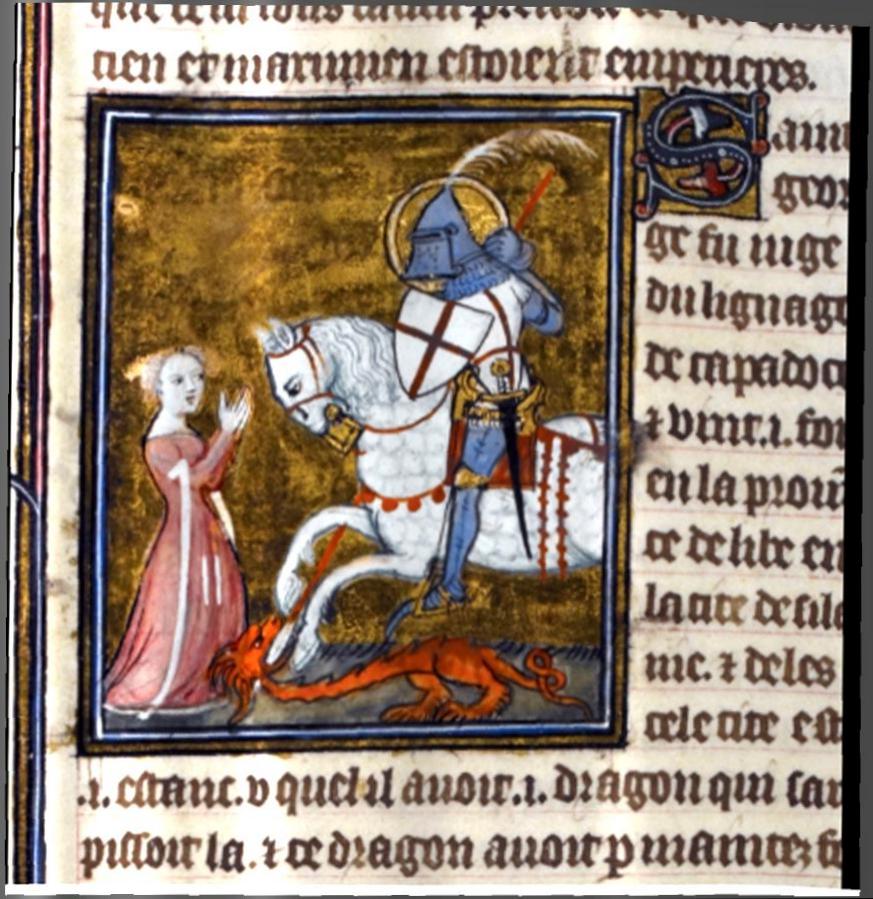 tien et maximien estoient empereres.
Saint
geor
ge fu nige
du lignage
de capadoce
⁊ vint .i. foi
en la prouī
ce de libe en
la cite de sile
nie. ⁊ de les
cele cite est
.i. estanc. v quel il auoit .i. dragon qui
pissoit la. ⁊ ce dragon auoit p maintes